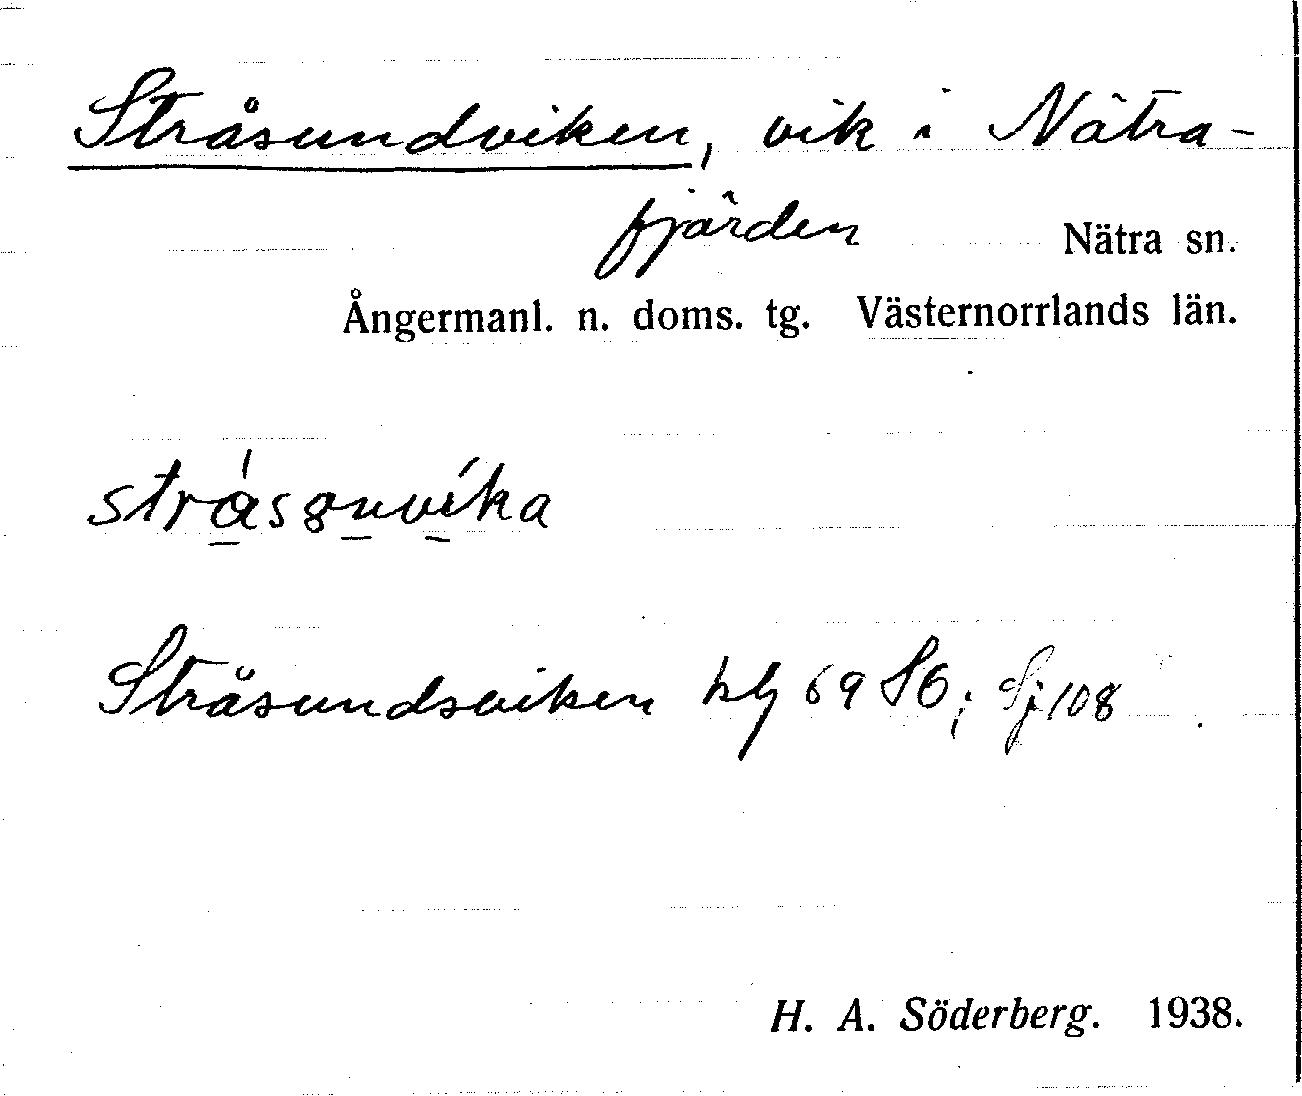 Stråsundviken, vik i Nätra-
fjärden Nätra sn.
Ångermanl. n. doms. tg. Västernorrlands län.
Stråsundsviken 69 S6; Sj 108
H. A. Söderberg. 1938.